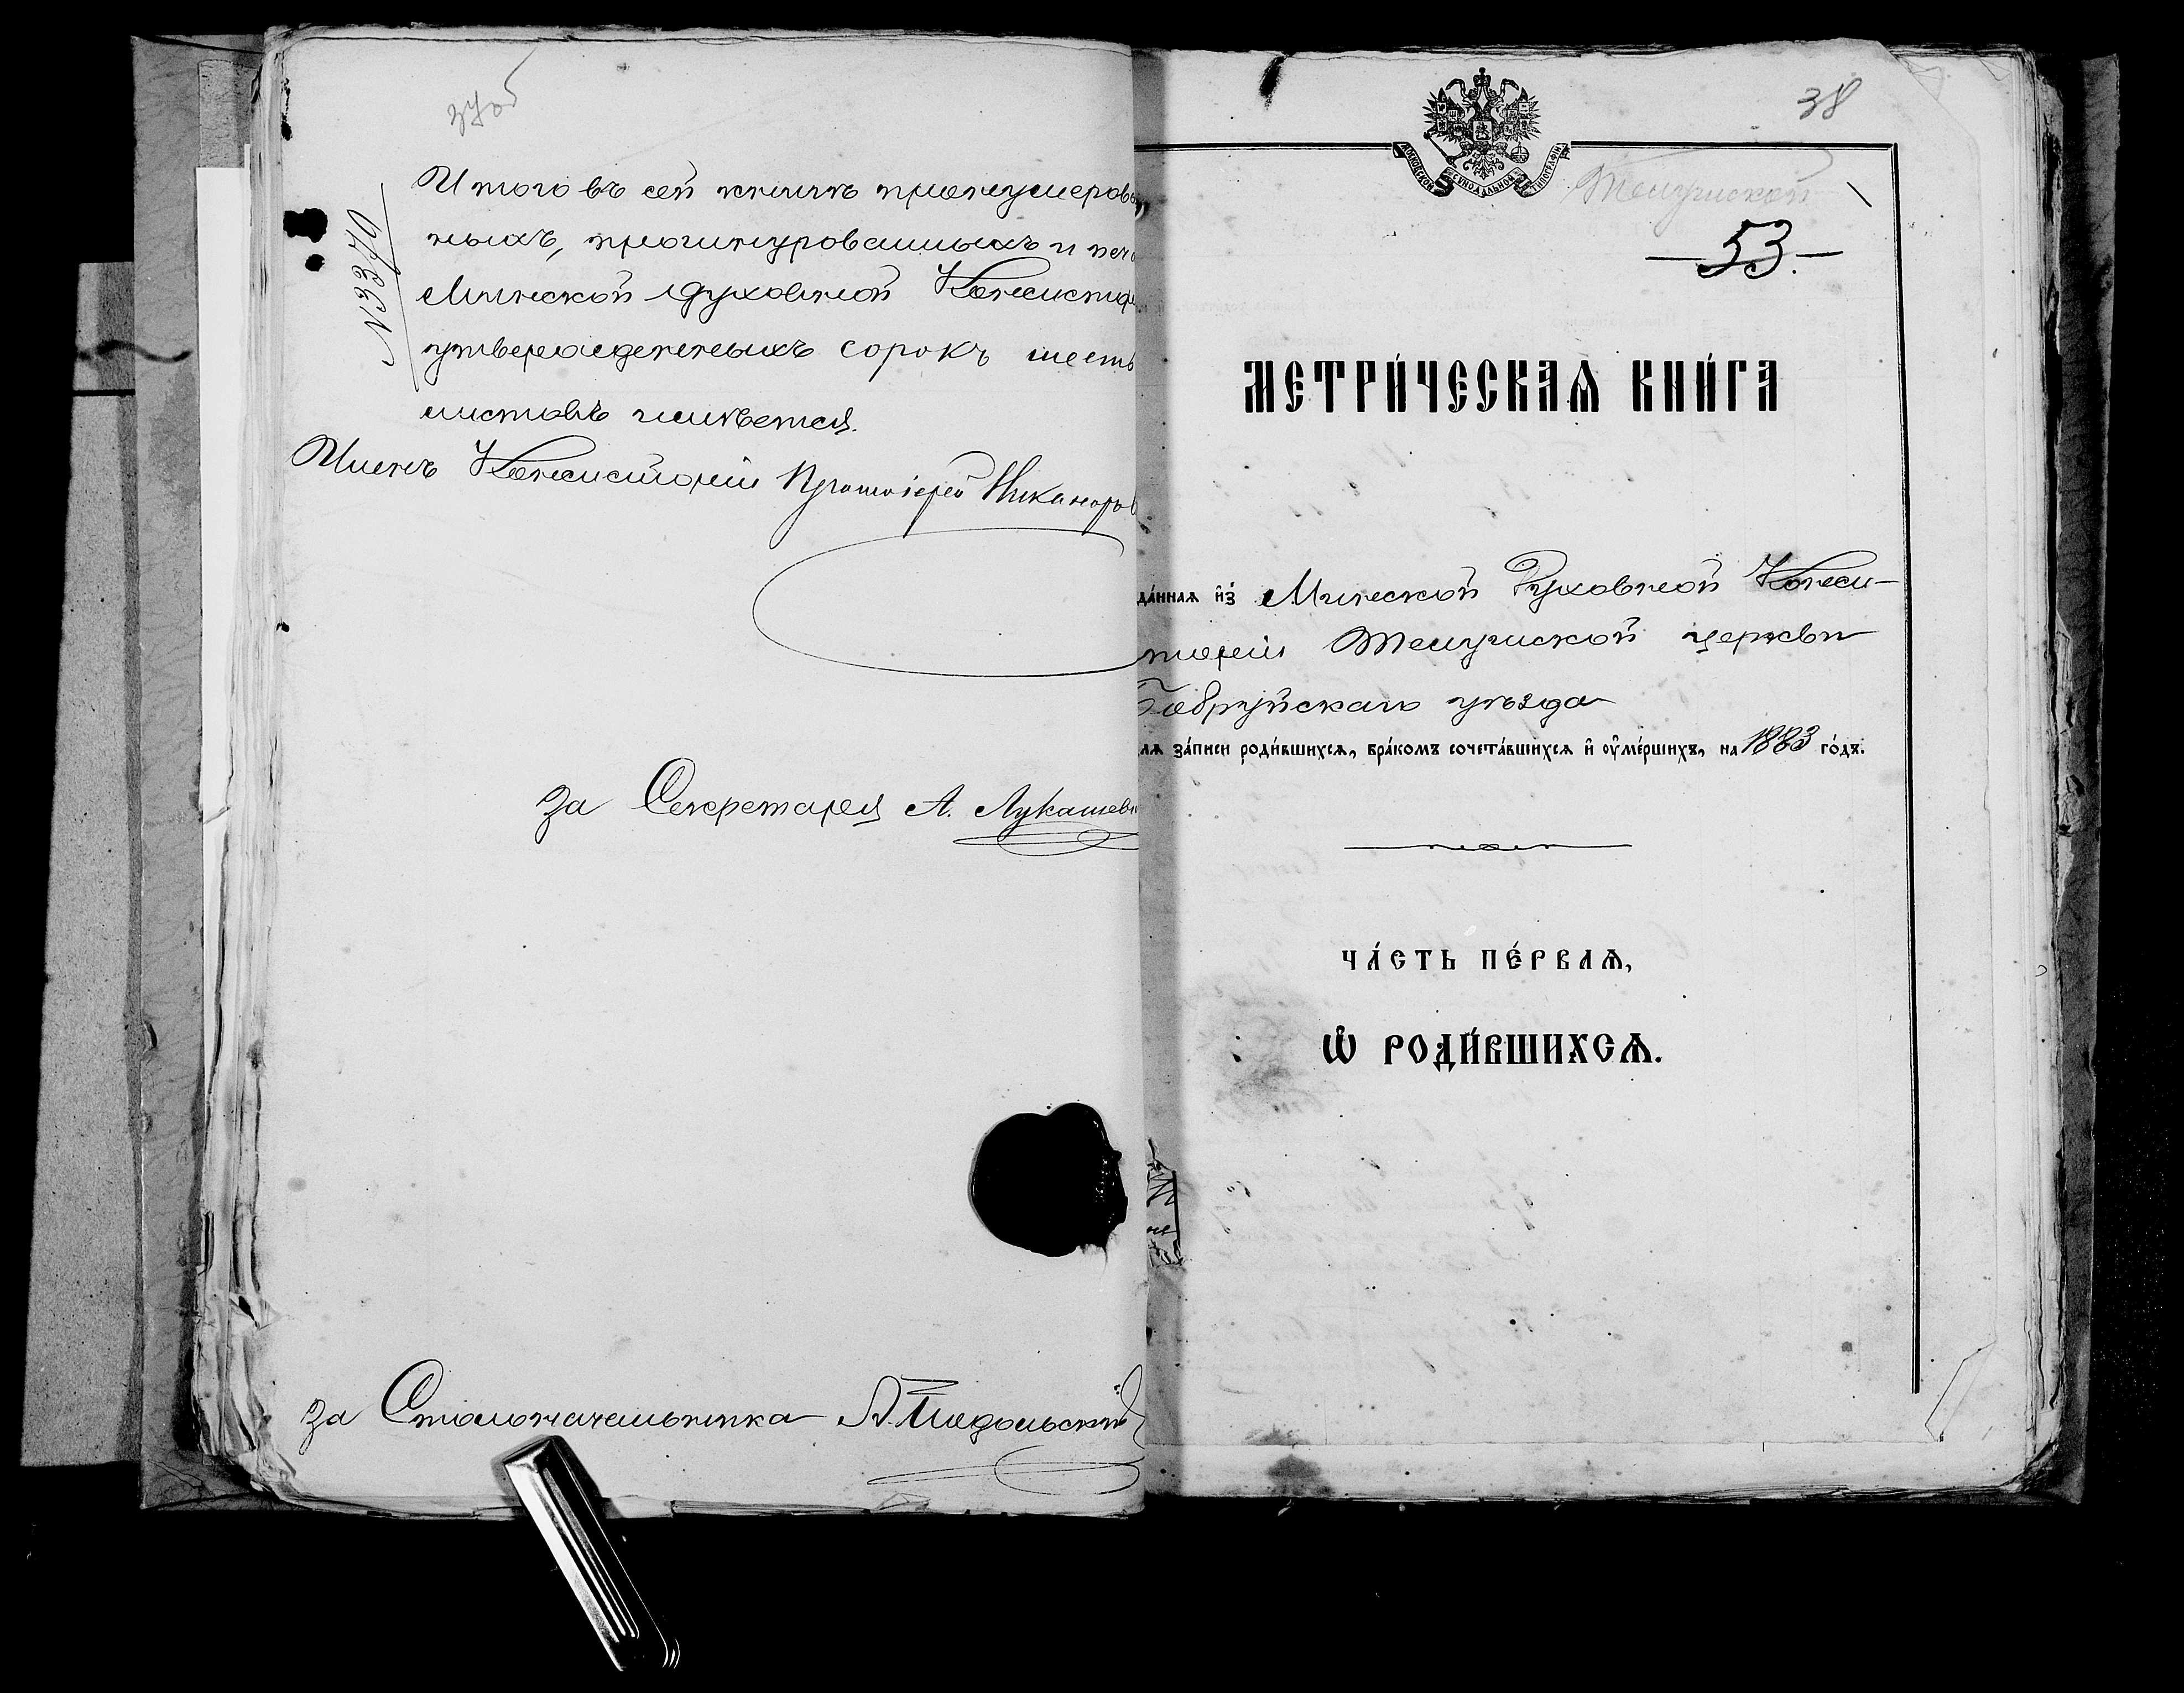 37об
N 3370
Итого въ сей книгѣ пронумерован
ныхъ, прошнурованныхъ и печа
Минской Духовной Консистор
утвержденныхъ сорокъ шесть
листовъ имѣется.
Членъ Консисторіи Протоіерей Никаноръ
За Секретаря А. Лукашеви
За Столоначальника А. Подольскій
38
МОСКОВСКОЙ СѴНОДАЛЬНОЙ ТИПОГРАФІИ
Телушской
— 53. —
МЕТРИ́ЧЕСКАѦ КНИ́ГА
да́ннаѧ и҆з̾ Минской Духовной Конси-
торіи Телушской церкви
Бобруйскаго уѣзда
лѧ за́писи роди́вшихсѧ, бра́комъ сочета́вшихсѧ и҆ ᲂу҆ме́ршихъ, на 1883 го́дъ.
ЧА́СТЬ ПЕ́РВАѦ,
Ѡ҆ РОДИ́ВШИХСѦ.